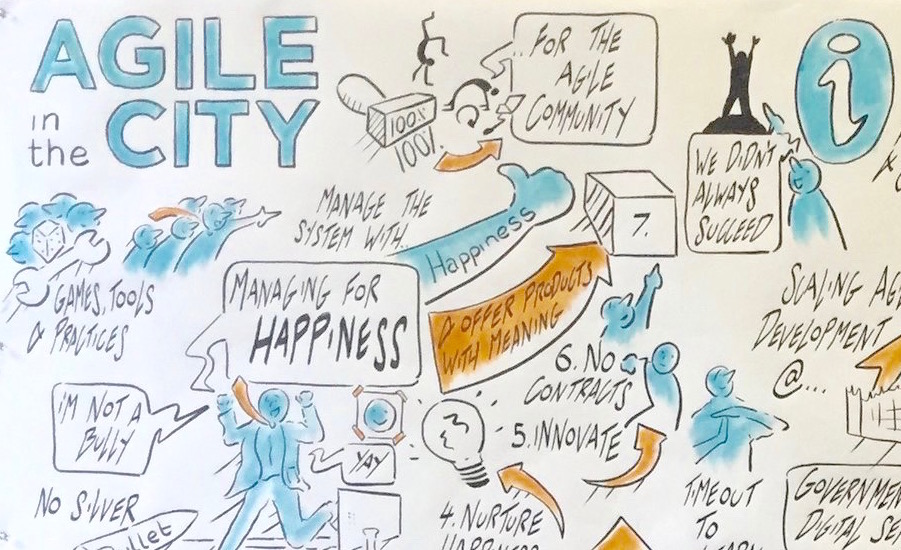 AGILE
in
the CITY
100%
100%
FOR THE
AGILE
COMMUNITY
WE DIDN'T
ALWAYS
SUCCEED
i
&
MANAGE THE
SYSTEM WITH..
Happiness
7.
GAMES, TOOLS
& PRACTICES
MANAGING FOR
HAPPINESS
& OFFER PRODUCTS
WITH MEANING
SCALING AG
DEVELOPMENT
@...
6. NO
CONTRACTS
5. INNOVATE
I'M NOT A
BULLY
YAY
NO SILVER
Bullet
4. NURTURE
HAPPINESS
TIMEOUT
TO
GOVERNMEN
DIGITAL SE